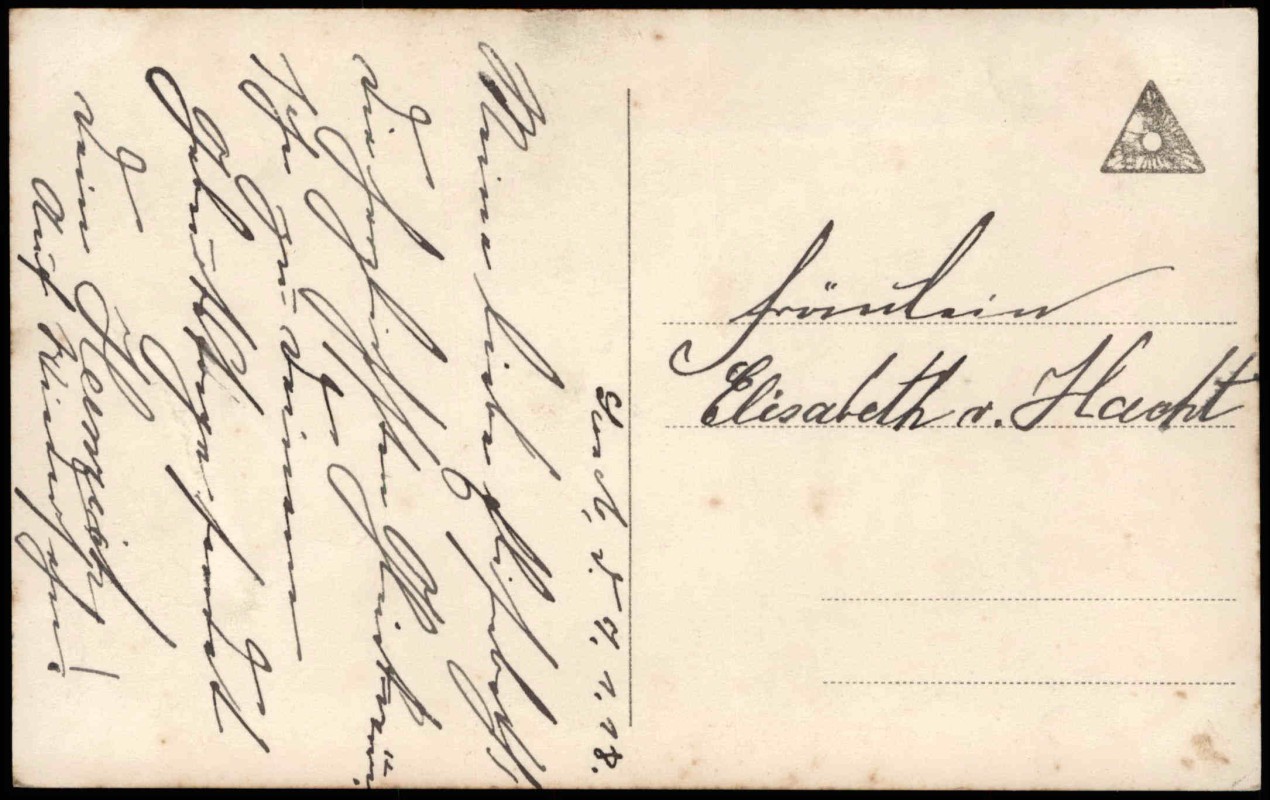 Fräulein
Elisabeth v. Hacht
d. 7.1.18.
Meine liebe Elisabeth!
Die herzlichsten Glückwün-
sche zu Deinem
Geburtstage sendet
Dir
Dein Heinrich
Auf Wiedersehn!